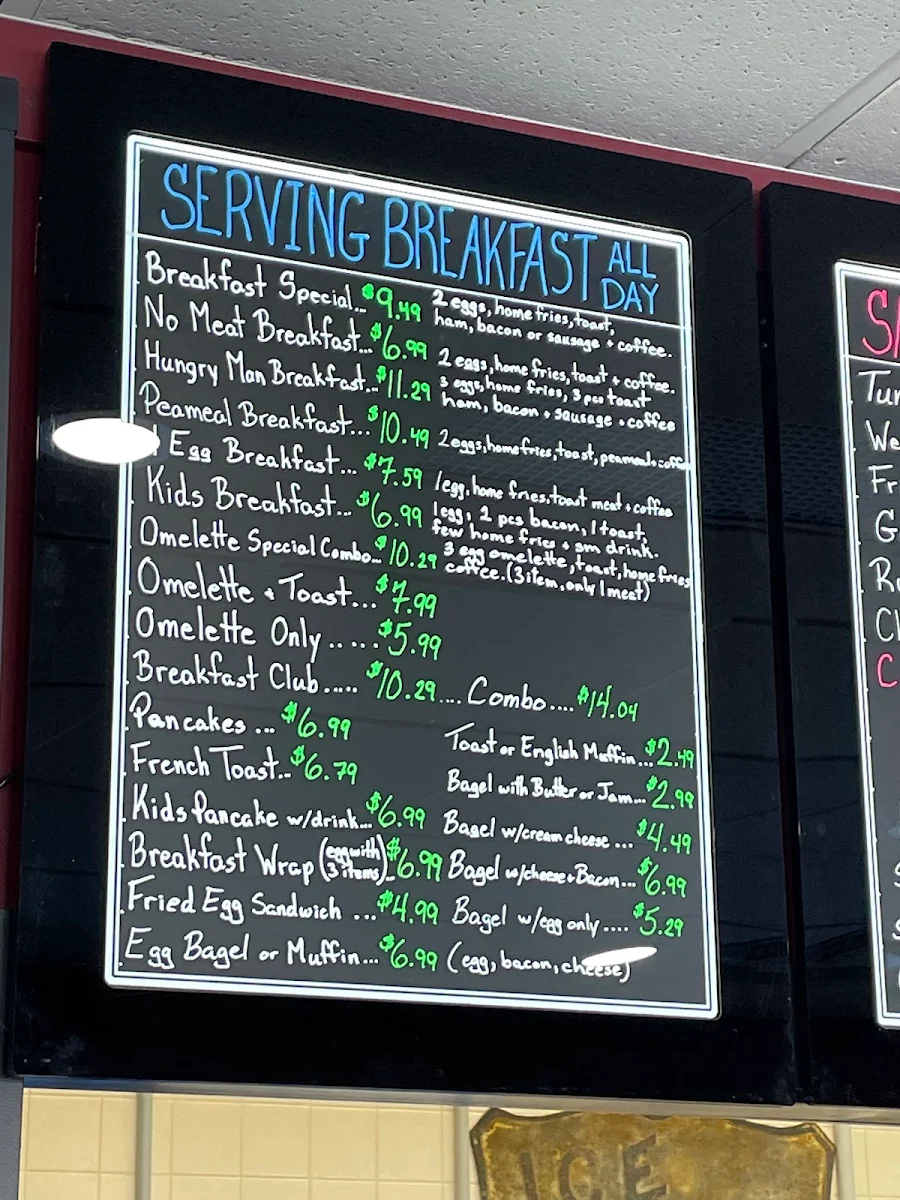 SERVING BREAKFAST ALL DAY
Breakfast Special... $9.49 2 eggs, home fries, toast,
ham, bacon or sausage + coffee.
No Meat Breakfast... $6.99 2 eggs, home fries, toast + coffee.
Hungry Man Breakfast... $11.29 3 eggs, home fries, 3 pcs toast
ham, bacon + sausage + coffee
Peameal Breakfast... $10.49 2 eggs, home fries, toast, peameal + coffee
Egg Breakfast... $7.59 1 egg, home fries, toast meat + coffee
Kids Breakfast... $6.99 1 egg, 2 pcs bacon, 1 toast,
few home fries + sm drink.
Omelette Special Combo... $10.29 3 egg omelette, toast, home fries
coffee. (3 item, only 1 meat)
Omelette + Toast... $7.99
Omelette Only ..... $5.99
Breakfast Club..... $10.29.... Combo.... $14.04
Pancakes ... $6.99
Toast or English Muffin... $2.49
French Toast... $6.79
Bagel with Butter or Jam... $2.99
Kids Pancake w/drink... $6.99
Bagel w/cream cheese ... $4.49
Breakfast Wrap (egg with 3 items).. $6.99
Bagel w/cheese + Bacon... $6.99
Fried Egg Sandwich ... $4.99
Bagel w/egg only .... $5.29
Egg Bagel or Muffin... $6.99 (egg, bacon, cheese)
Tu
We
Fr
G
C
ICE